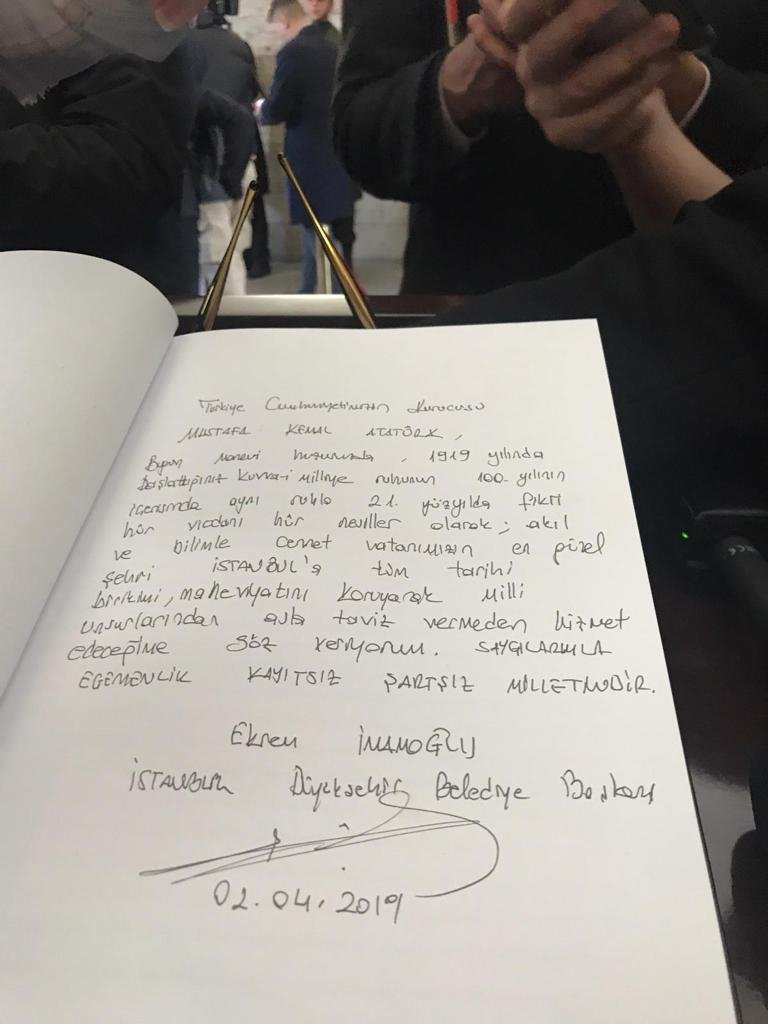 Türkiye Cumhuriyetimizin Kurucusu
MUSTAFA KEMAL ATATÜRK,
Bugün Manevi huzurunda, 1919 yılında
Başlattığınız Kuvva-i Milliye ruhunun 100. yılının
içerisinde aynı ruhla 21. yüzyılda fikri
hür vicdanı hür nesiller olarak; akıl
ve bilimle cennet vatanımızın en güzel
şehri İSTANBUL'a tüm tarihi
birikimi, maneviyatını koruyarak Milli
unsurlarından asla taviz vermeden hizmet
edeceğime söz veriyorum. SAYGILARIMLA
EGEMENLİK KAYITSIZ ŞARTSIZ MİLLETİNDİR.
Ekrem İMAMOĞLU
İSTANBUL Büyükşehir Belediye Başkanı
02.04.2019